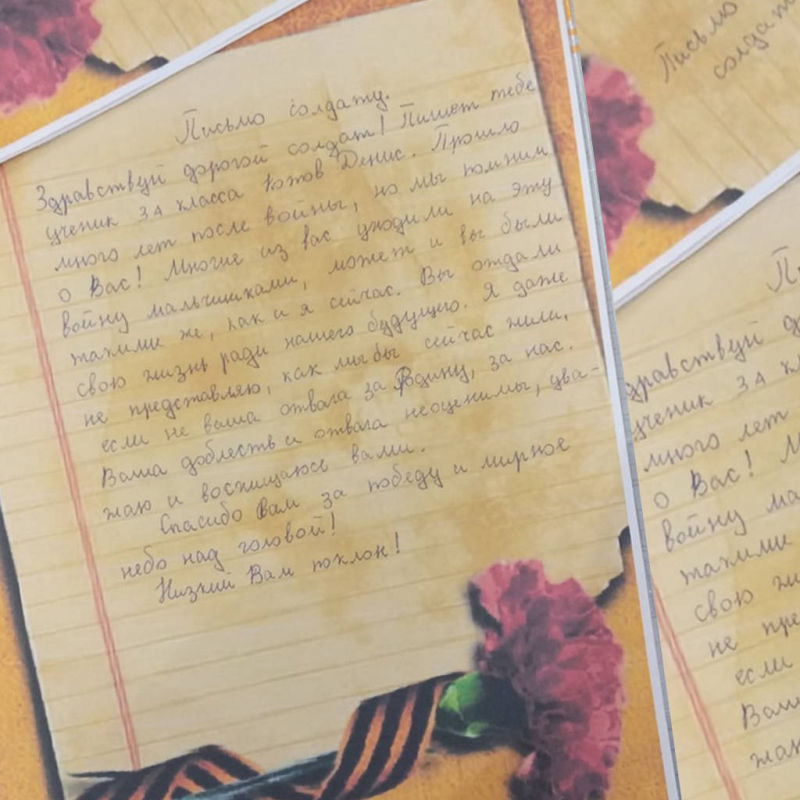 Письмо солдату.
Здравствуй дорогой солдат! Пишет тебе
ученик 3А класса Котов Денис. Прошло
много лет после войны, но мы помним
о Вас! Многие из вас уходили на эту
войну мальчишками, может и вы были
такими же, как и я сейчас. Вы отдали
свою жизнь ради нашего будущего. Я даже
не представляю, как мы бы сейчас жили,
если не ваша отвага за Родину, за нас.
Ваша доблесть и отвага неоценимы, ува-
жаю и восхищаюсь вами.
Спасибо Вам за победу и мирное
небо над головой!
Низкий Вам поклон!
Письмо
солдат
П
дравствуй д
ученик 3А кл
много лет
о Вас! М
войну ма
такими
свою жи
не пре
если
Ваш
жаю